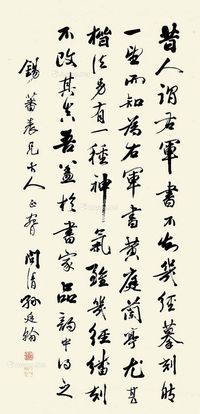 昔人谓右軍書不知幾經摹刻時
一望而知為右軍書黃庭蘭亭尤甚
楷法另有一種神氣雖幾經繙刻
不改其真吾蓋於書家品韻中得之
錫蕃表兄大人正腕 閏清孫廷翰